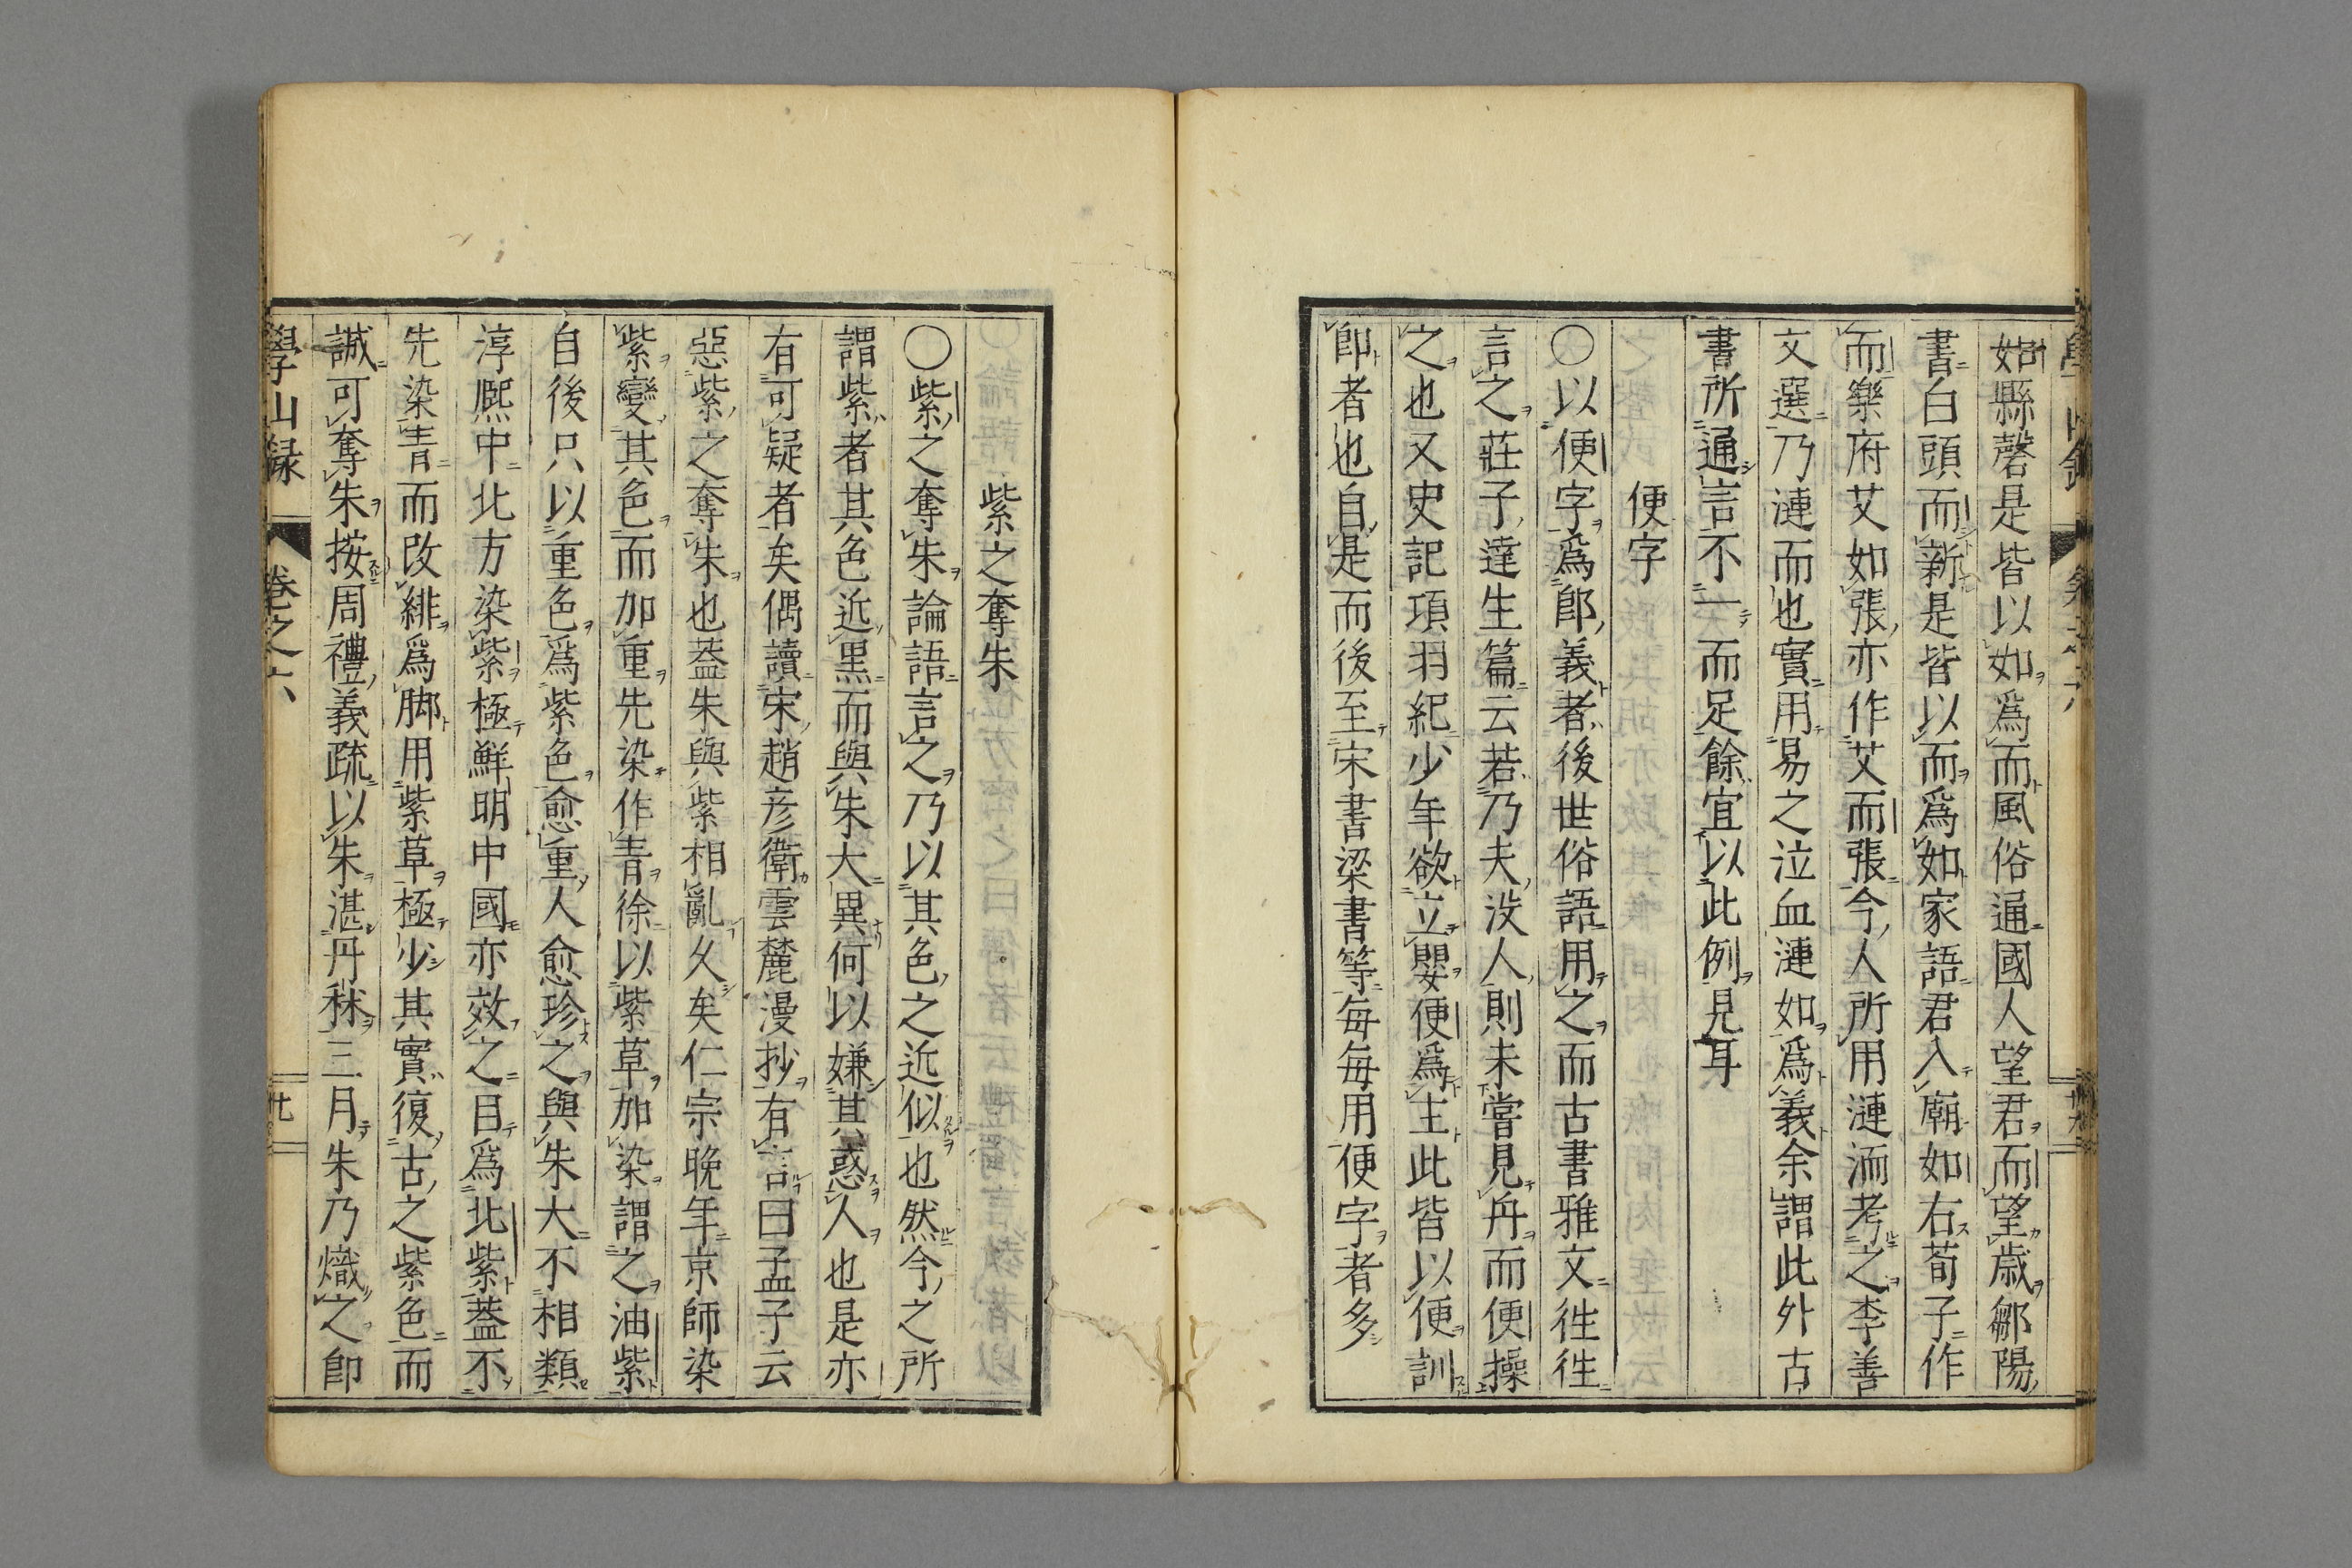 如縣磬是皆以如爲而風俗通國人望君而望歳鄒陽
書白頭而新是皆以而爲如家語君入廟如右荀子作
而樂府艾如張亦作艾而張今人所用漣洏考之李善
文選乃漣而也實用易之泣血漣如爲義余謂此外古
書所通言不一而足餘宜以此例見耳
便字
〇以便字爲卽義者後世俗語用之而古書雅文徃徃
言之莊子達生篇云若乃夫没人則未嘗見舟而便操
之也又史記項羽紀少年欲立嬰便爲王此皆以便訓
卽者也自是而後至宋書梁書等毎毎用便字者多
紫之奪朱
〇紫之奪朱論語言之乃以其色之近似也然今之所
謂紫者其色近黒而與朱大異何以嫌其惑人也是亦
有可疑者矣偶讀宋趙彦衛雲麓漫抄有言曰孟子云
惡紫之奪朱也葢朱與紫相亂久矣仁宗晩年京師染
紫變其色而加重先染作青徐以紫草加染謂之油紫
自後只以重色爲紫色愈重人愈珍之與朱大不相類
淳熈中北方染紫極鮮明中國亦效之目爲北紫葢不
先染青而改緋爲脚用紫草極少其實復古之紫色而
誠可奪朱按周禮義疏以朱湛丹秫三月朱乃熾之卽
學山録 卷之六 廿